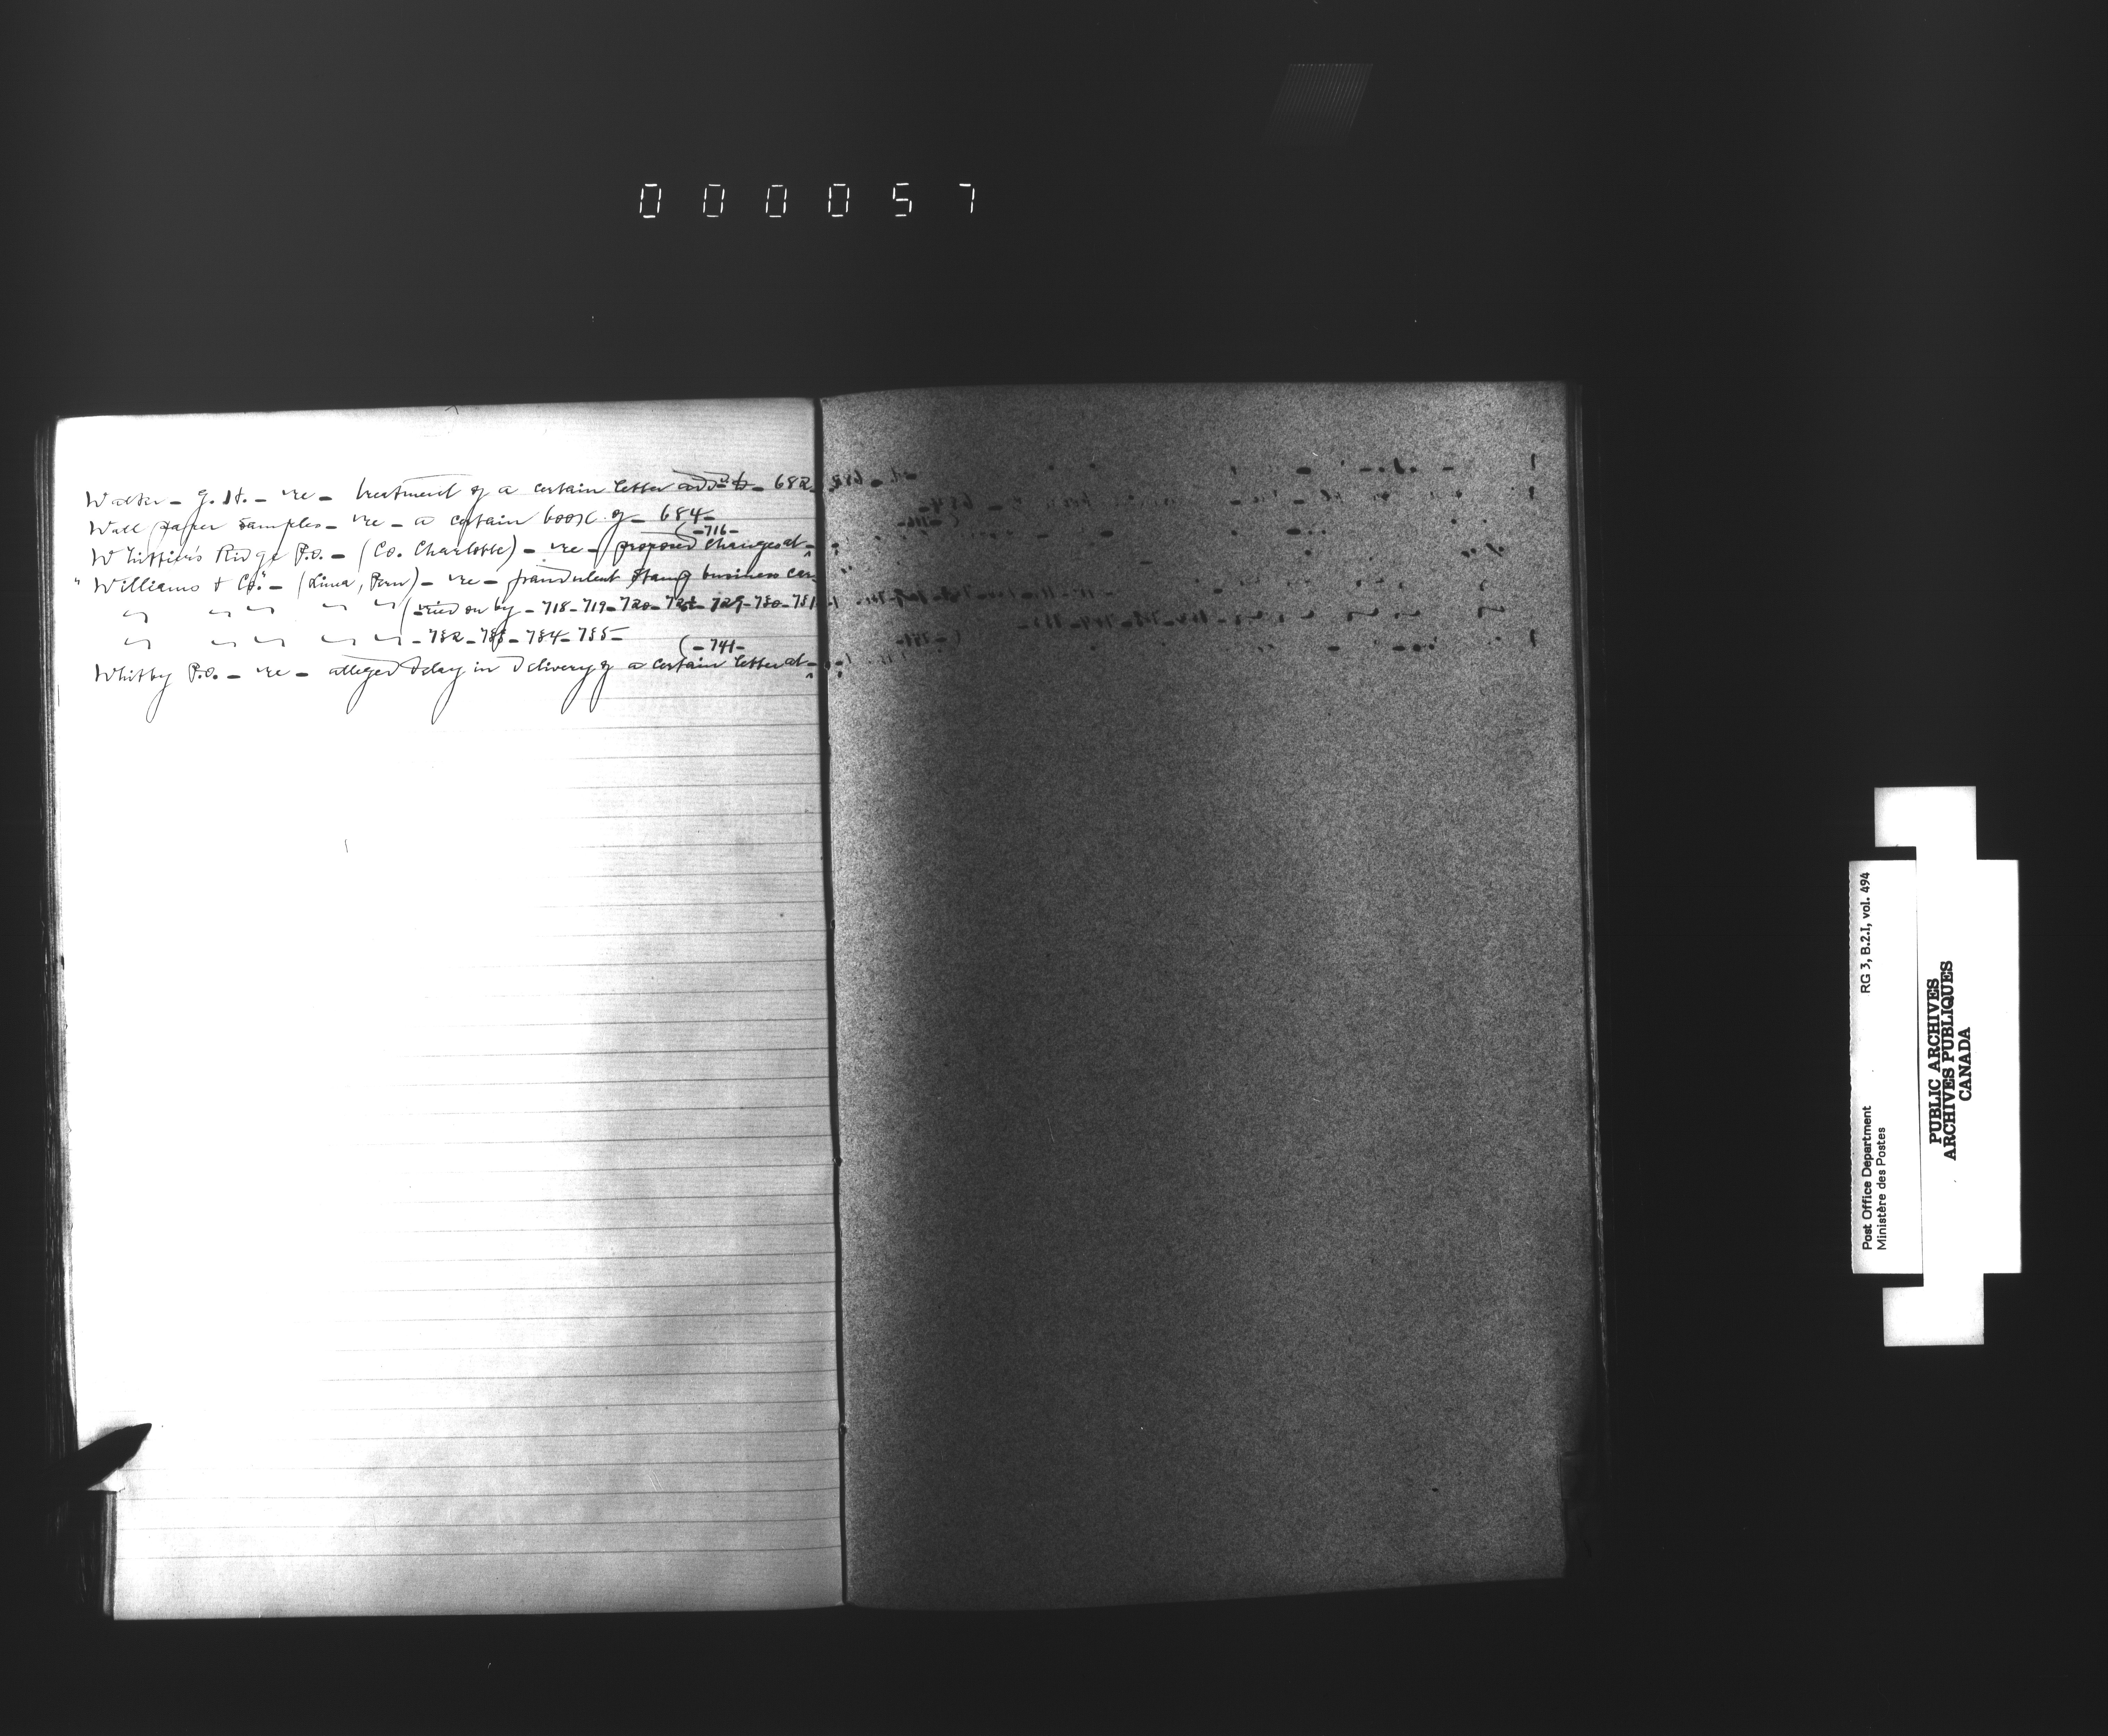 000057
Walker - G. H. - re - treatment of a certain letter add'd to - 682
Wall paper samples - re - a certain book of - 684 -
(- 716 -
Whittier's Ridge P.O. - (Co. Charlotte) - re - proposed changes at -
"Williams & Co." - (Lima, Peru) - re - fraudulent stamp business car-
" " " " " (-ried on by - 718 - 719 - 720 - 729 - 730 - 731
" " " " " - 732 - 733 - 734 - 735 -
(- 741 -
Whitby P.O. - re - alleged delay in delivery of a certain letter at -
Post Office Department RG 3, B.2.I, vol. 494
Ministère des Postes
PUBLIC ARCHIVES
ARCHIVES PUBLIQUES
CANADA